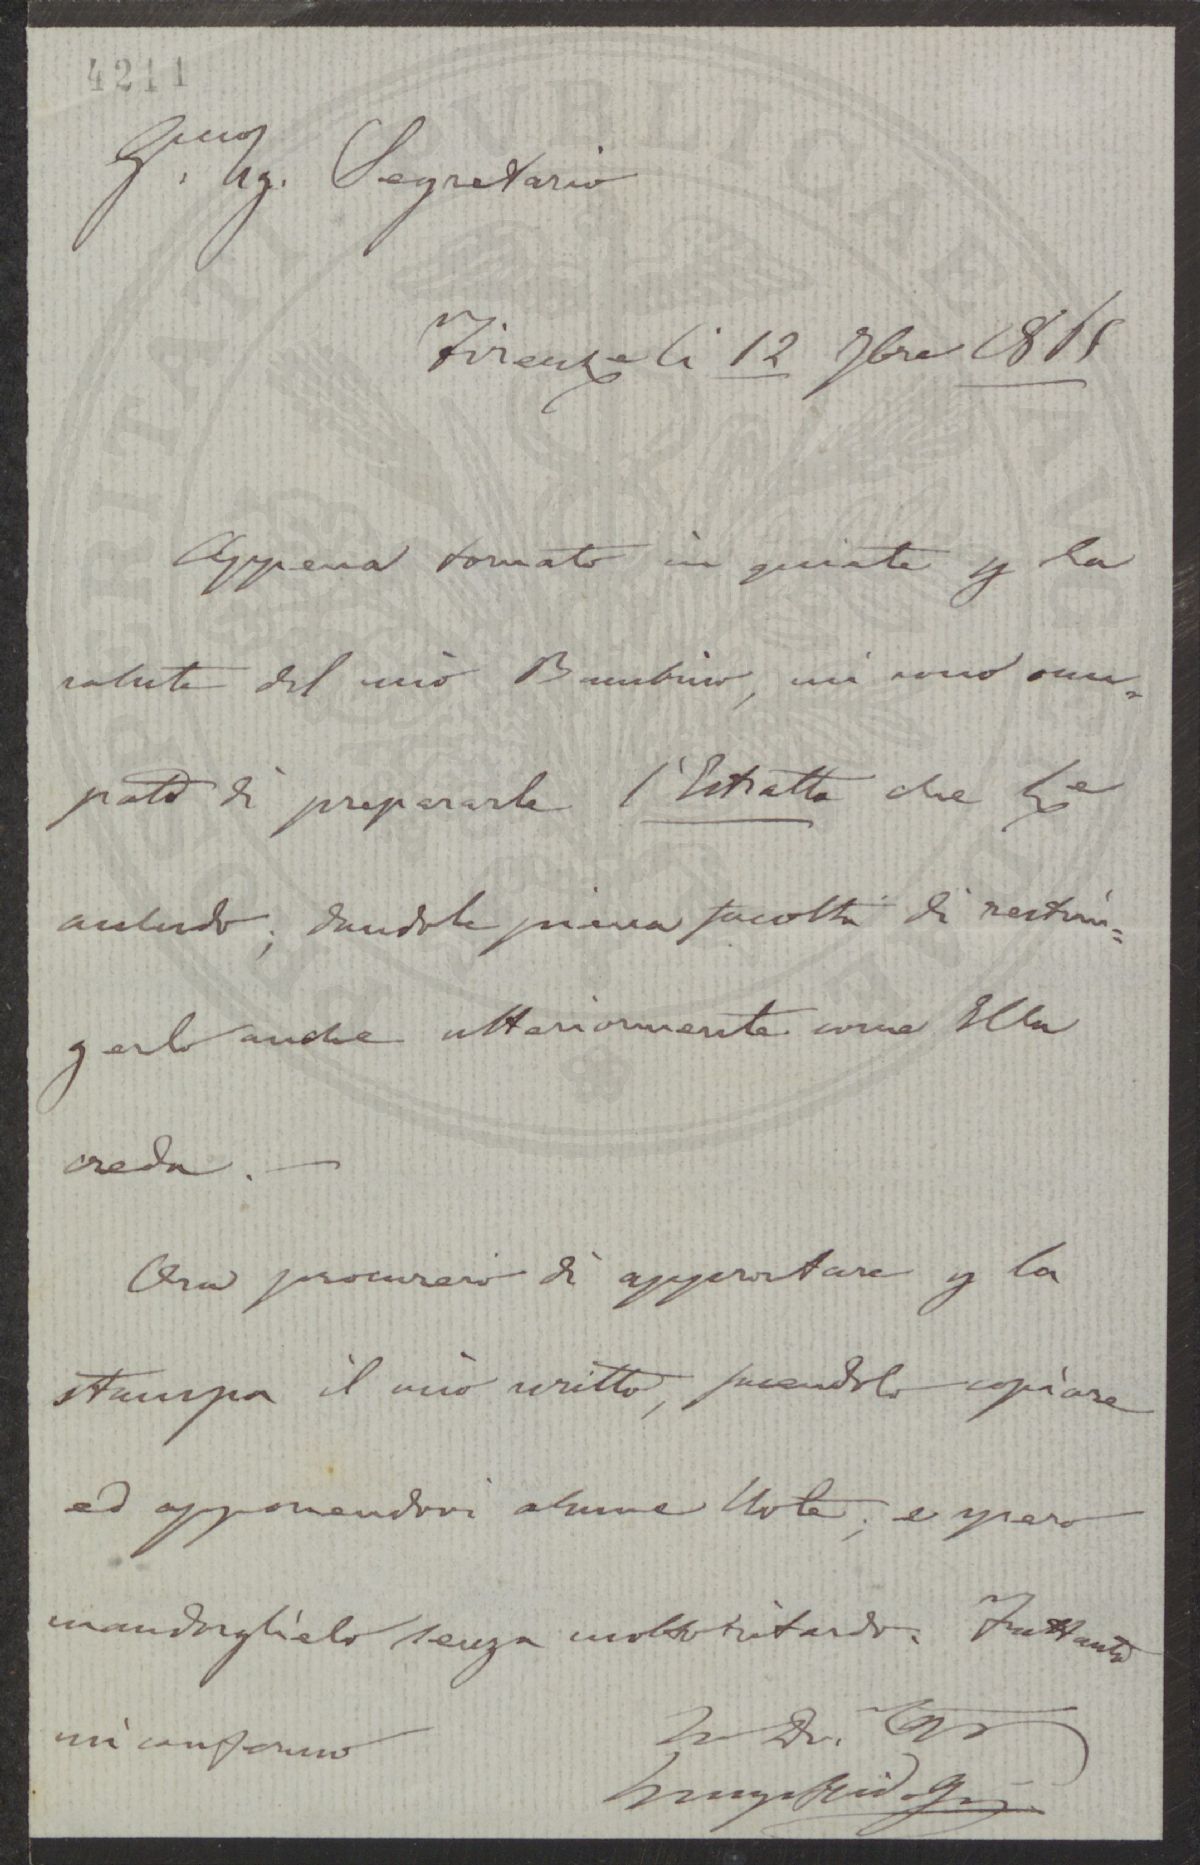 4211
Sig. Segretario
Firenze li 12 9bre 186
Appena tornato in quiete p la
salute del mio Bambino, mi sono occu=
pato di prepararle l'Estratto che Le
accludo; dandole piena facoltà di restrin=
gerlo anche ulteriormente come Ella
creda. —
Ora procurerò di approntare p la
stampa il mio scritto, facendolo copiare
ed apponendovi alcune Note; e spero
mandarglielo senza molto ritardo. Frattanto
mi confermo
Suo Dv.